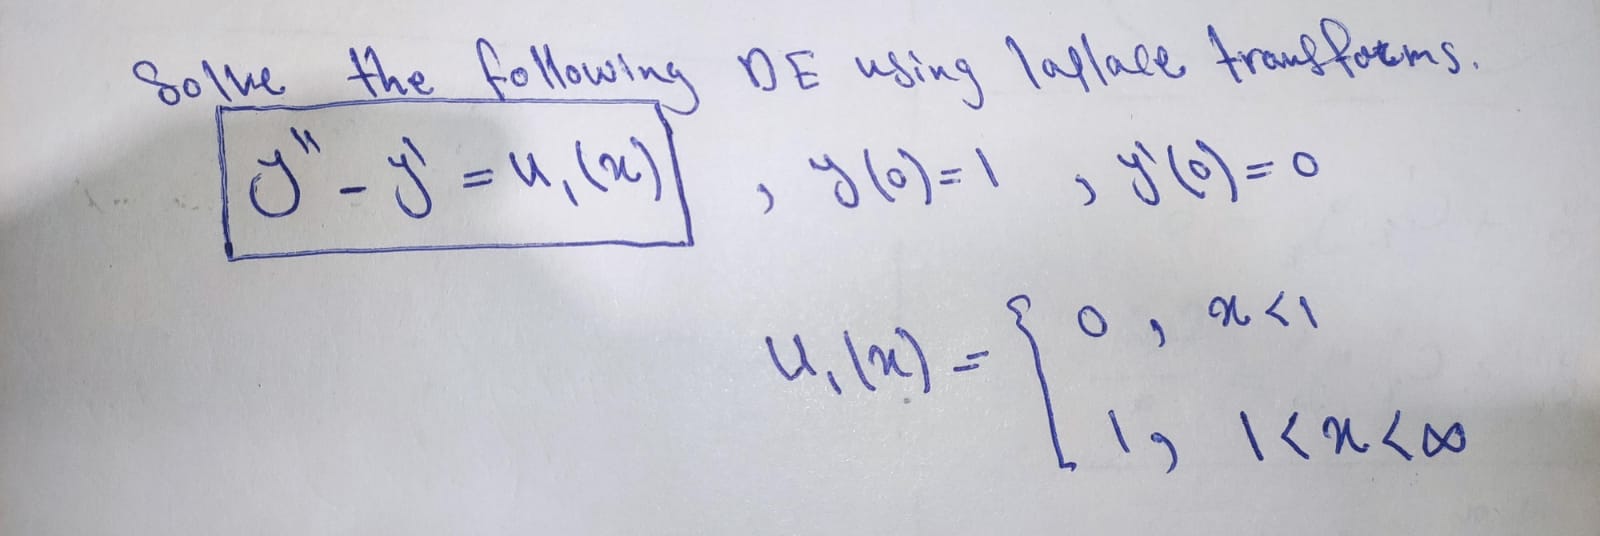 Solve the following DE using laplace transforms.
y'' - y' = u₁(x) , y(0)=1 , y'(0)=0
u₁(x) = { 0 , x<1
1 , 1<x<∞